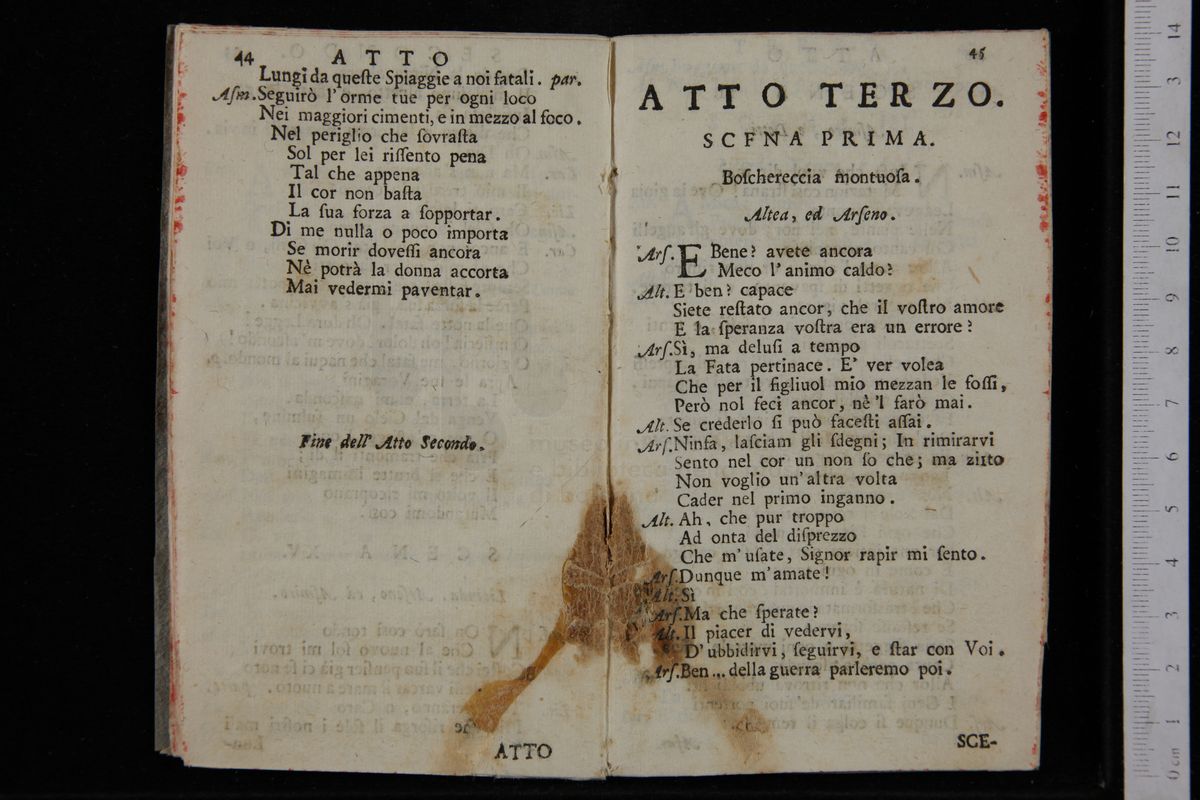 44 ATTO
Lungi da queſte Spiaggie a noi fatali. par.
Aſm. Seguirò l'orme tue per ogni loco
Nei maggiori cimenti, e in mezzo al foco.
Nel periglio che ſovraſta
Sol per lei riſſento pena
Tal che appena
Il cor non baſta
La ſua forza a ſopportar.
Di me nulla o poco importa
Se morir doveſſi ancora
Nè potrà la donna accorta
Mai vedermi paventar.
Fine dell' Atto Secondo.
ATTO
45
ATTO TERZO.
SCFNA PRIMA.
Boſchereccia montuoſa.
Altea, ed Arſeno.
Arſ. E Bene? avete ancora
Meco l'animo caldo?
Alt. E ben? capace
Siete reſtato ancor, che il voſtro amore
E la ſperanza voſtra era un errore?
Arſ. Sì, ma deluſi a tempo
La Fata pertinace. E' ver volea
Che per il figliuol mio mezzan le foſſi,
Però nol feci ancor, nè 'l farò mai.
Alt. Se crederlo ſi può faceſti aſſai.
Arſ. Ninfa, laſciam gli ſdegni; In rimirarvi
Sento nel cor un non ſo che; ma zitto
Non voglio un'altra volta
Cader nel primo inganno.
Alt. Ah, che pur troppo
Ad onta del diſprezzo
Che m'uſate, Signor rapir mi ſento.
Arſ. Dunque m'amate!
Alt. Sì
Arſ. Ma che ſperate?
Alt. Il piacer di vedervi,
D'ubbidirvi, ſeguirvi, e ſtar con Voi.
Arſ. Ben... della guerra parleremo poi.
SCE-